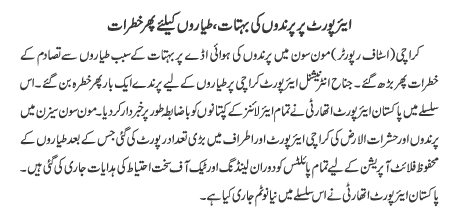 ایئرپورٹ پر پرندوں کی بہتات، طیاروں کیلئے پھر خطرات
کراچی (اسٹاف رپورٹر) مون سون میں پرندوں کی ہوائی اڈے پر بہتات کے سبب طیاروں سے تصادم کے
خطرات پھر بڑھ گئے۔ جناح انٹرنیشنل ایئرپورٹ کراچی پر طیاروں کے لیے پرندے ایک بار پھر خطرہ بن گئے۔ اس
سلسلے میں پاکستان ایئرپورٹ اتھارٹی نے تمام ایئر لائنز کے کپتانوں کو باضابطہ طور پر خبردار کردیا۔ مون سون سیزن میں
پرندوں اور حشرات الارض کی کراچی ایئرپورٹ اور اطراف میں بڑی تعداد رپورٹ کی گئی جس کے بعد طیاروں کے
محفوظ فلائٹ آپریشن کے لیے تمام پائلٹس کو دوران لینڈنگ اور ٹیک آف سخت احتیاط کی ہدایات جاری کی گئی ہیں۔
پاکستان ایئرپورٹ اتھارٹی نے اس سلسلے میں نیا نوٹم جاری کیا ہے۔